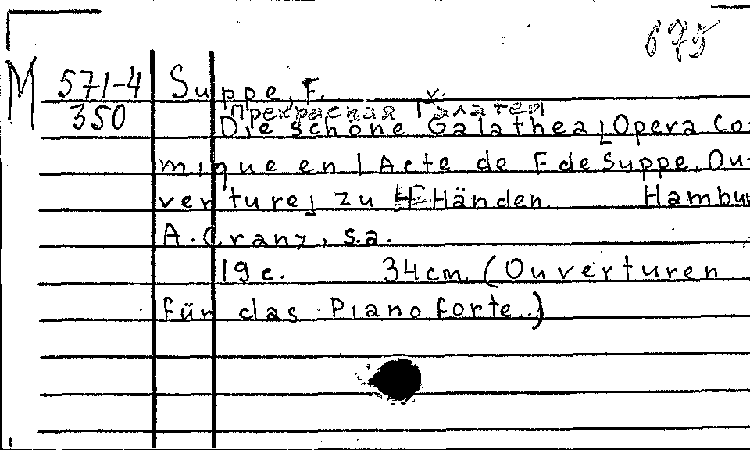 675
M 571-4 Suppe, F. v.
350 Прекрасная Галатея
Die schöne Galathea [Opera Co-
mique en 1 Acte de F. de Suppe. Ou-
verture] zu 4 Händen. Hambu
A. Cranz, s.a.
19 c. 34 cm. (Ouverturen
für das Pianoforte.)